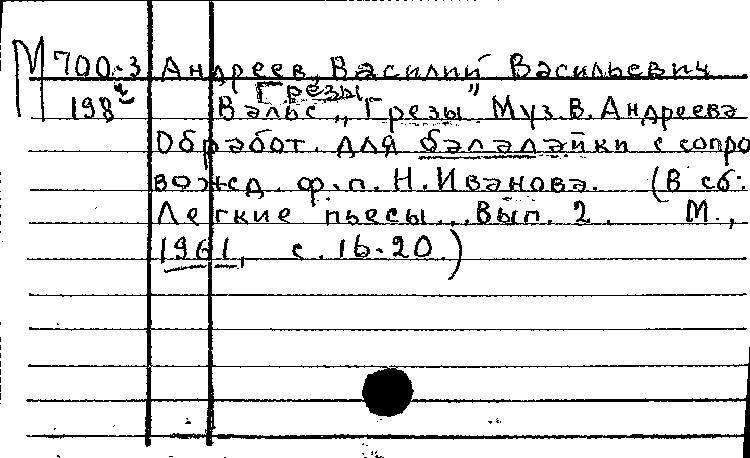 М 700-3 Андреев, Василий Васильевич
Грезы
198 Вальс „Грезы" Муз. В. Андреева
Обработ. для балалайки с сопро
вожд. ф.п. Н. Иванова. (В сб:
Легкие пьесы... Вып. 2. М.,
1961, с. 16-20.)